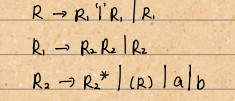 R → R₁ '|' R₁ | R₁
R₁ → R₂ R₂ | R₂
R₂ → R₂* | (R) | a | b